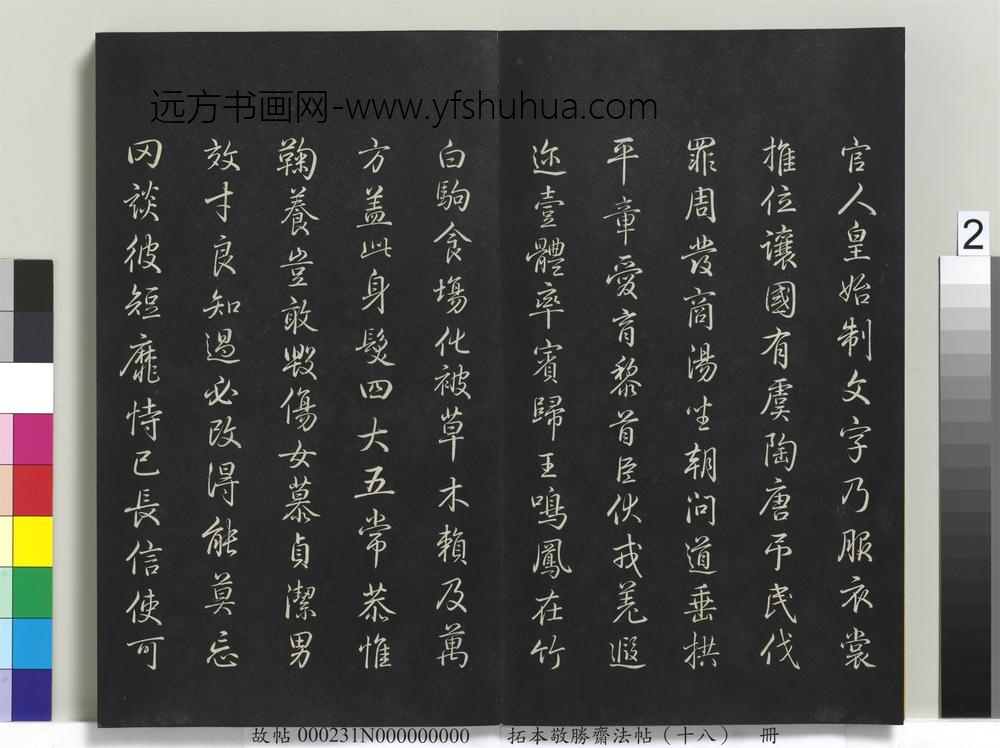 远方书画网-www.yfshuhua.com
官人皇始制文字乃服衣裳
推位讓國有虞陶唐吊民伐
罪周發商湯坐朝問道垂拱
平章愛育黎首臣伏戎羌遐
迩壹體率賓歸王鳴鳳在竹
白駒食場化被草木賴及萬
方盖此身髮四大五常恭惟
鞠養豈敢毀傷女慕貞潔男
效才良知過必改得能莫忘
罔談彼短靡恃己長信使可
2
故帖 000231N000000000 拓本敬勝齋法帖（十八） 冊